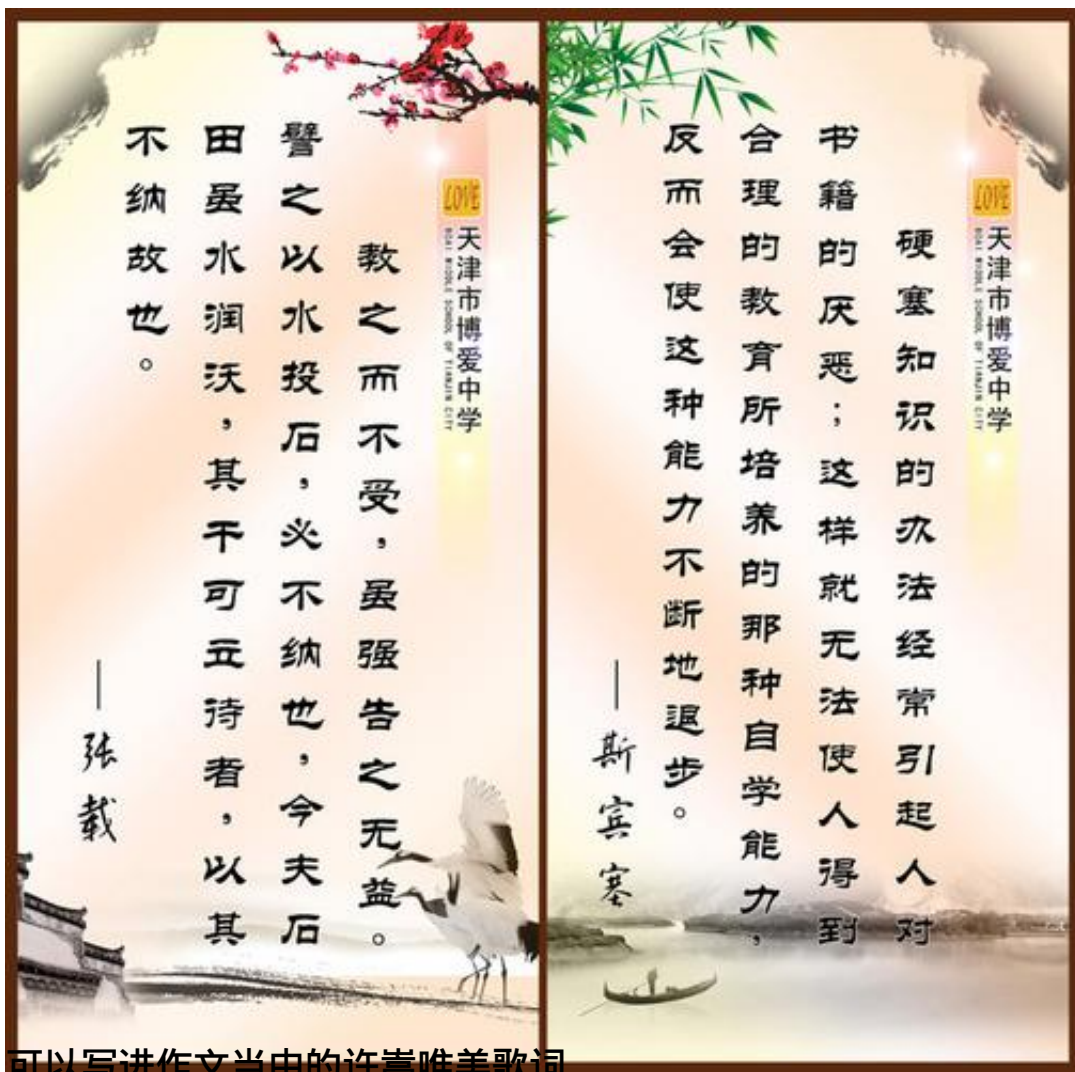 LOVE
天津市博爱中学
BOAI MIDDLE SCHOOL OF TIANJIN CITY
教之而不受,虽强告之无益。
譬之以水投石,必不纳也,今夫石
田虽水润沃,其干可立待者,以其
不纳故也。
——张载
LOVE
天津市博爱中学
BOAI MIDDLE SCHOOL OF TIANJIN CITY
硬塞知识的办法经常引起人对
书籍的厌恶;这样就无法使人得到
合理的教育所培养的那种自学能力,
反而会使这种能力不断地退步。
——斯宾塞
可以写进作文当中的许嵩唯美歌词